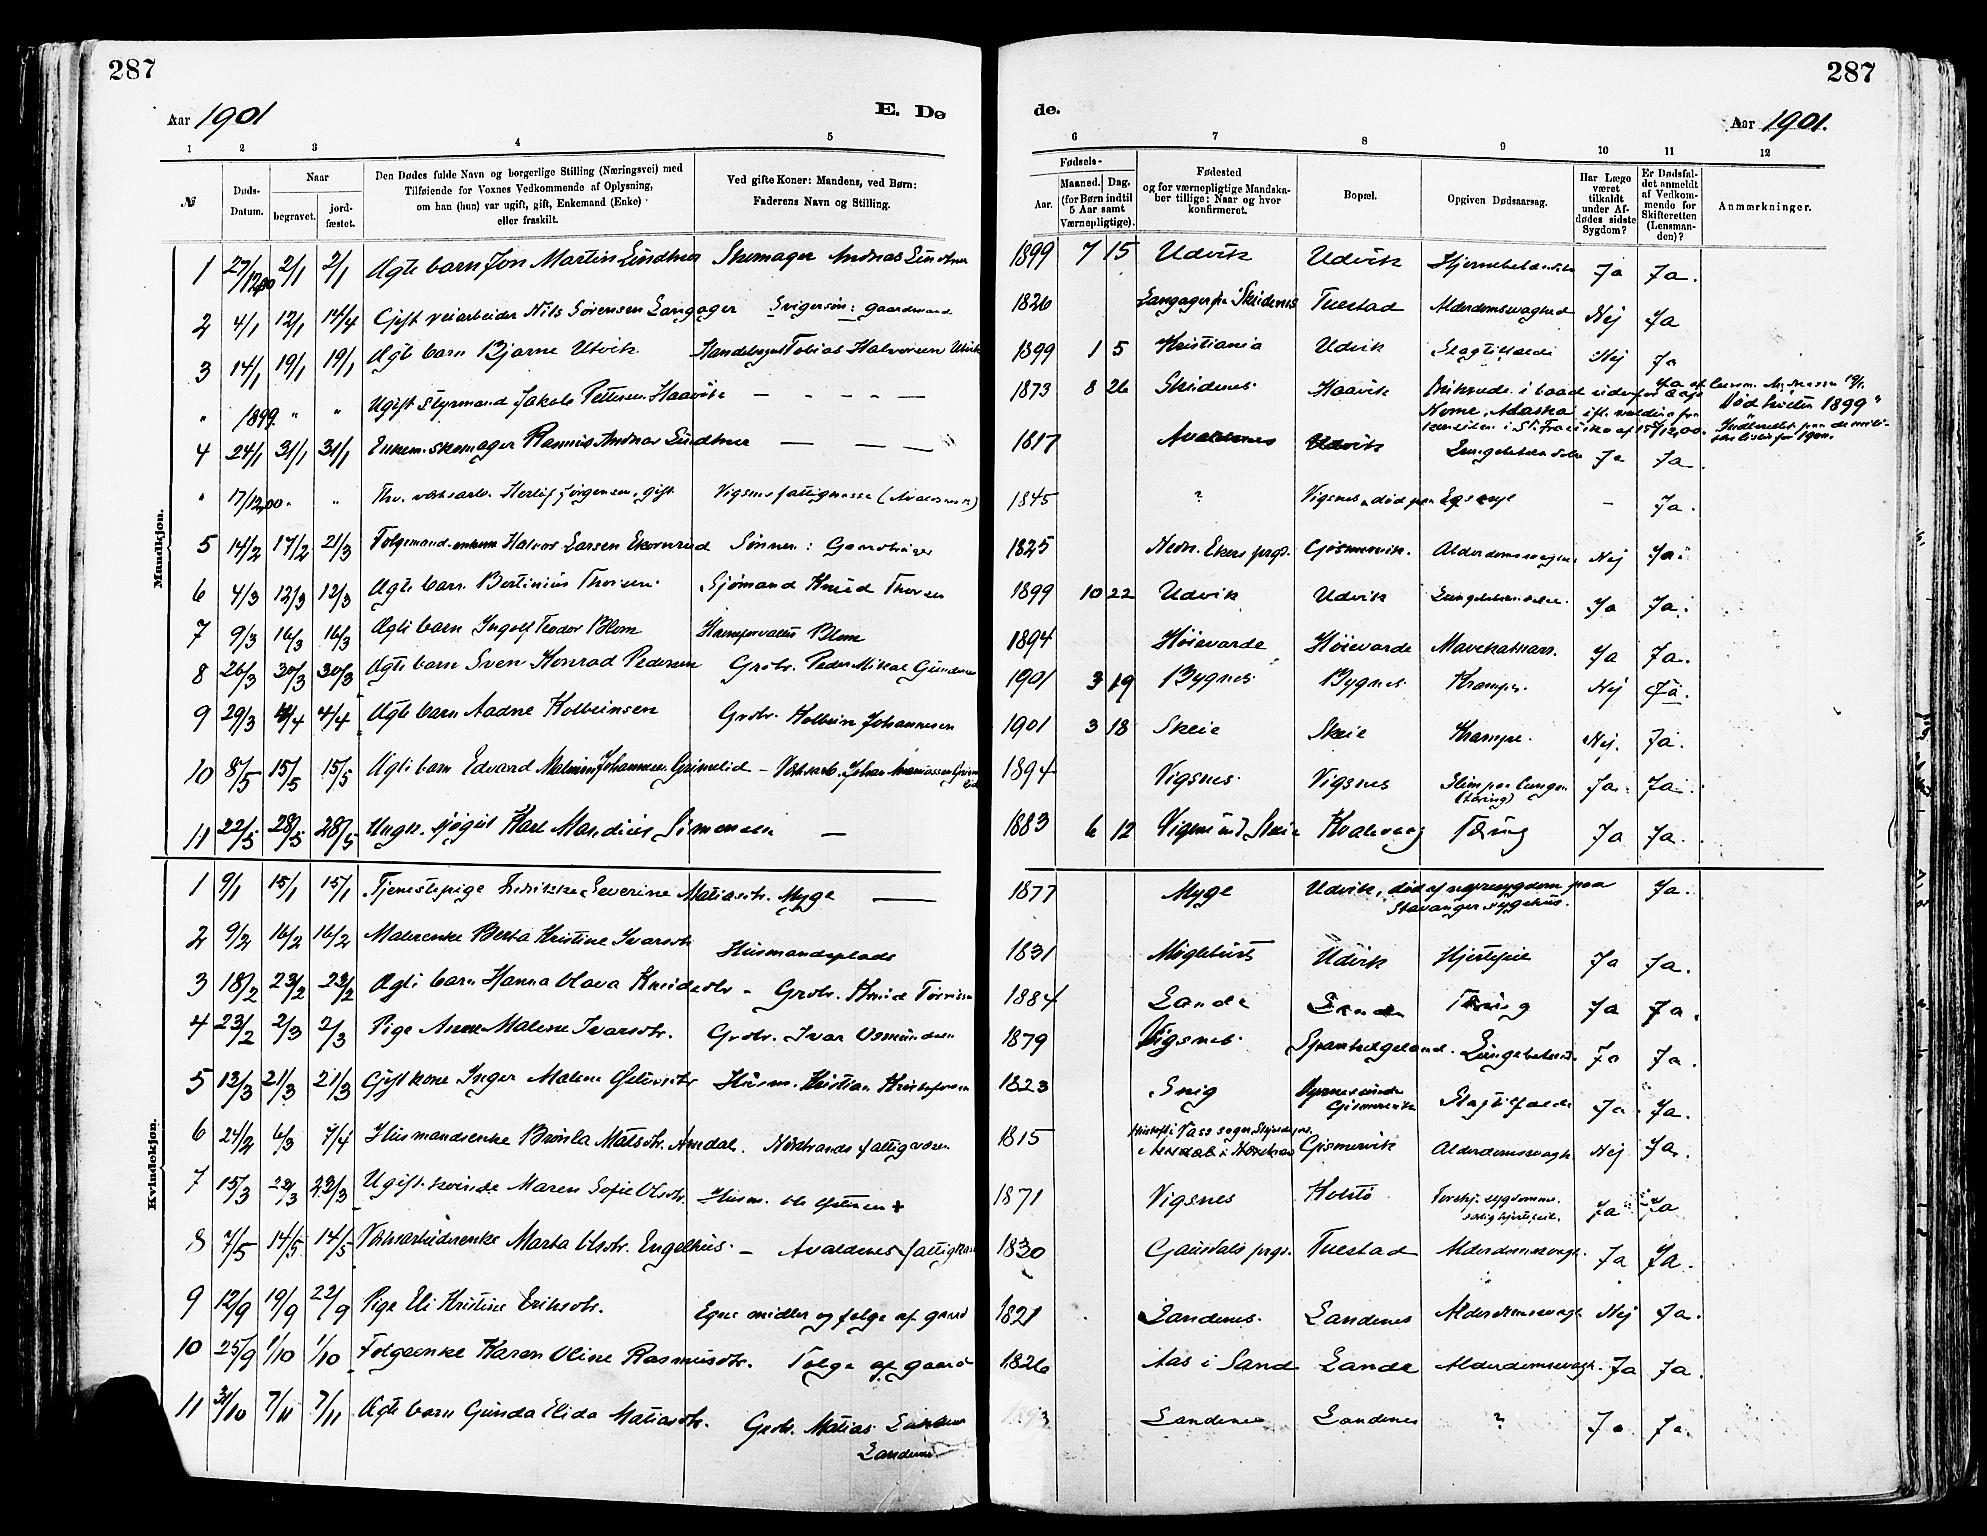 287
287
Aar 1901
E. Dø
de.
Aar 1901.
1 2 3 4 5 6 7 8 9 10 11 12
№
Døds-Datum.
Naar
begravet.
jord-fæstet.
Den Dødes fulde Navn og borgerlige Stilling (Næringsvei) med
Tilføiende for Voxnes Vedkommende af Oplysning,
om han (hun) var ugift, gift, Enkemand (Enke)
eller fraskilt.
Ved gifte Koner: Mandens, ved Børn:
Faderens Navn og Stilling.
Fødsels-
Aar.
Maaned. Dag.
(for Børn indtil
5 Aar samt
Værnepligtige).
Fødested
og for værnepligtige Mandska-
ber tillige: Naar og hvor
konfirmeret.
Bopæl.
Opgiven Dødsaarsag.
Har Læge
været
tilkaldt
under Af-
dødes sidste
Sygdom?
Er Dødsfal-
det anmeldt
af Vedkom-
mende for
Skifteretten
(Lensman-
den)?
Anmærkninger.
Mandkjøn.
1 27/12,00 2/1 2/1 Ægte barn Jon Martin Lindtner Skomager Andreas Lindtner 1899 7 15 Udvik Udvik Ja Ja.
2 4/1 12/1 14/4 Gift veiarbeider Nils Sørensen Langager Svigersøn: gaardmand 1826 Langager fra Skudenes Tuestad Alderdomssvaghed Nej Ja
3 14/1 19/1 19/1 Ægte barn Bjarne Utvik Tobias Halvorsen Utvik 1899 1 5 Kristiania Udvik Slagtilfælde Nej Ja
" 1899 " " Ugift styrmand Jakob Pettersen Haavik — — — — 1873 8 26 Skudenes Haavik Druknede i baad udenfor Cape
Nome, Alaska
4 24/1 31/1 31/1 Enkem. skomager Rasmus Andreas Lindtner — — — 1817 Avaldsnes Udvik Lungebetændelse Ja Ja.
" 17/12,00 " " Herlof Jørgensen, gift Vigsnes fattigkasse (Avaldsnes) 1845 ? Vigsnes, død paa — Ja.
5 14/2 17/2 21/3 Følgemand enkem Halvor Larsen Ekornrud Sønnen: Gaardbruger 1825 Nedr. Ekers prgd. Gismervik. Nej Ja.
6 4/3 12/3 12/3 Ægte barn Bertinius Thorsen. Sjømand Knud Thorsen 1899 10 22 Udvik Udvik Lungebetændelse. Ja Ja.
7 9/3 16/3 16/3 Ægte barn Ingolf Teodor Blom Blom 1894 Høievarde Høievarde Mavekatharr. Ja Ja.
8 26/3 30/3 30/3 Ægte barn Sven Konrad Pedersen Grdbr. Peder Mikal Gundersen 1901 3 19 Bygnes. Bygnes. Krampe. Nej Ja.
9 29/3 4/4 4/4 Ægte barn Aadne Kolbeinsen Grdbr. Kolbein Johannesen 1901 3 18 Skeie Skeie Krampe. Nej. Ja.
10 8/5 15/5 15/5 Ægte barn Edvard Johannesen Grimelid – Johan 1894 Vigsnes. Vigsnes Slim paa lungen
(tæring) Ja. Ja.
11 22/5 28/5 28/5 Ungk. sjøgut Karl Mandius Simonsen — 1883 6 12 Kvalevaag Tæring Ja Ja.
Kvindekjøn.
1 9/1 15/1 15/1 Tjenestepige Fredrikke Severine Matiasdtr. Myge — 1877 Myge Udvik, død af nyresygdom paa
Stavanger sygehus. Ja.
2 9/2 16/2 16/2 Malerenke Berta Kristine Ivarsdtr Husmandsplads 1831 Udvik Hjertefeil Ja Ja.
3 18/2 23/2 23/2 Ægte barn Hanna Olava Knudsdtr – Grdbr. Knud 1884 Sande Sande Tæring Ja Ja.
4 23/2 2/3 2/3 Pige Anne Malene Ivarsdtr. Grdbr. Ivar Osmundsen 1879 Vigsnes. Spanhelgeland. Ja Ja.
5 13/3 21/3 21/3 Gift kone Inger Malene Husm. Kristian Kristofersen 1823 Snig Gismervik Slagtilfælde Ja. Ja.
6 24/2 6/3 7/4 Husmandsenke Matsdtr. Amdal. fattigvæsen 1815 Gismervik Alderdomssvagh. Nej Ja.
7 15/3 23/3 23/3 Ugift kvinde Maren Sofie Olsdtr. Husm. Ole + 1871 Vigsnes Kolstø Forskj. sygdomme
særlig hjertefeil. Ja Ja
8 7/5 14/5 14/5 Marta Olsdtr. Engelhus. – Avaldsnes fattigkasse 1830 Gausdals prgd. Tuestad Alderdomssvagh. Ja Ja.
9 12/9 19/9 22/9 Pige Eli Kristine Eriksdtr. Egne midler og følge af gaard 1821 Sandenes. Sandenes Alderdomssvagh. Nej Ja.
10 25/9 1/10 1/10 Følgeenke Karen Oline Rasmusdtr. Følge af gaard 1826 Aas i Sand Sande Alderdomssvagh. Ja Ja.
11 31/10 7/11 7/11 Ægte barn Gunda Elida Matiasdtr. Grdbr. Matias
Sandenes 1893 Sandenes Sandenes ? Ja Ja.